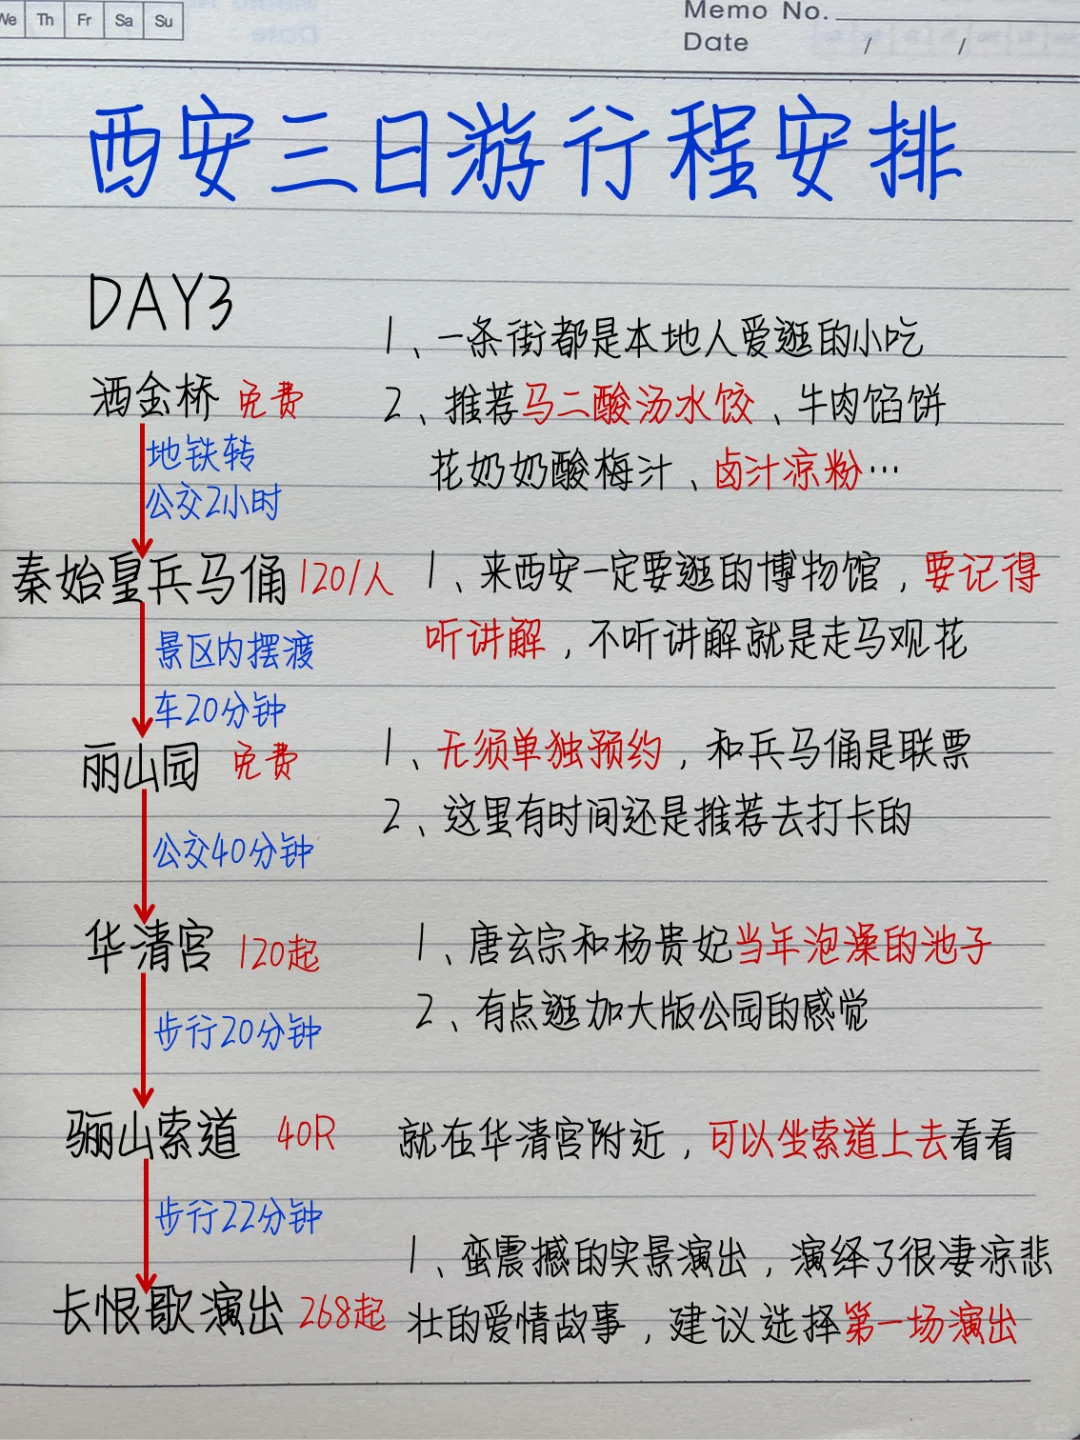 We Th Fr Sa Su
Memo No.
Date / /
西安三日游行程安排
DAY3
洒金桥 免费
1、一条街都是本地人爱逛的小吃
2、推荐马二酸汤水饺、牛肉馅饼
花奶奶酸梅汁、卤汁凉粉…
地铁转
公交2小时
秦始皇兵马俑 120/人
1、来西安一定要逛的博物馆，要记得
听讲解，不听讲解就是走马观花
景区内摆渡
车20分钟
丽山园 免费
1、无须单独预约，和兵马俑是联票
2、这里有时间还是推荐去打卡的
公交40分钟
华清宫 120起
1、唐玄宗和杨贵妃当年泡澡的池子
2、有点逛加大版公园的感觉
步行20分钟
骊山索道 40R
就在华清宫附近，可以坐索道上去看看
步行22分钟
长恨歌演出 268起
1、蛮震撼的实景演出，演绎了很凄凉悲
壮的爱情故事，建议选择第一场演出